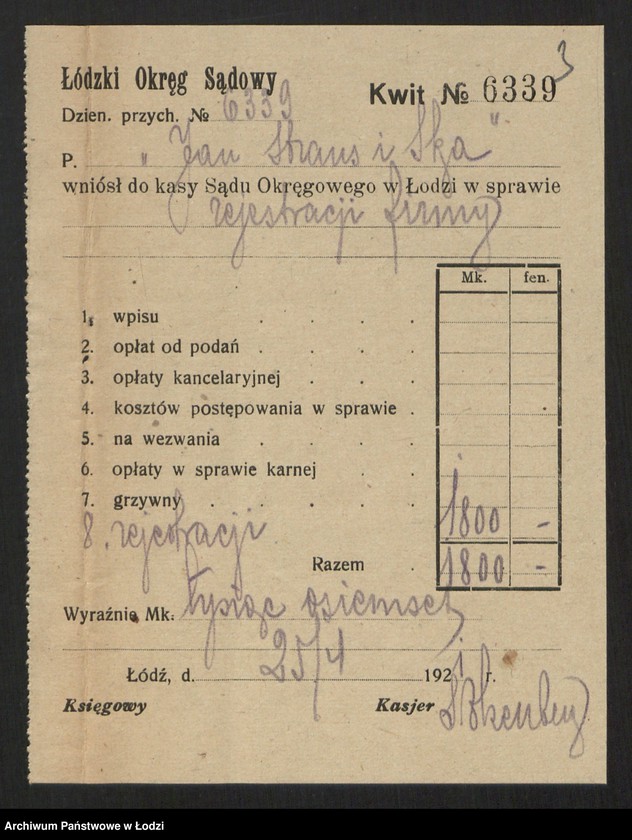 3
Łódzki Okręg Sądowy
Kwit № 6339
Dzien. przych. № 6339
P. „Jan Straus i Ska"
wniósł do kasy Sądu Okręgowego w Łodzi w sprawie
rejestracji firmy
Mk. fen.
1. wpisu
2. opłat od podań
3. opłaty kancelaryjnej
4. kosztów postępowania w sprawie
5. na wezwania
6. opłaty w sprawie karnej
7. grzywny
8. rejestracji 1800 -
Razem 1800 -
Wyraźnie Mk. tysiąc osiemset
25/4
Łódź, d. 1921 r.
Księgowy Kasjer
Archiwum Państwowe w Łodzi